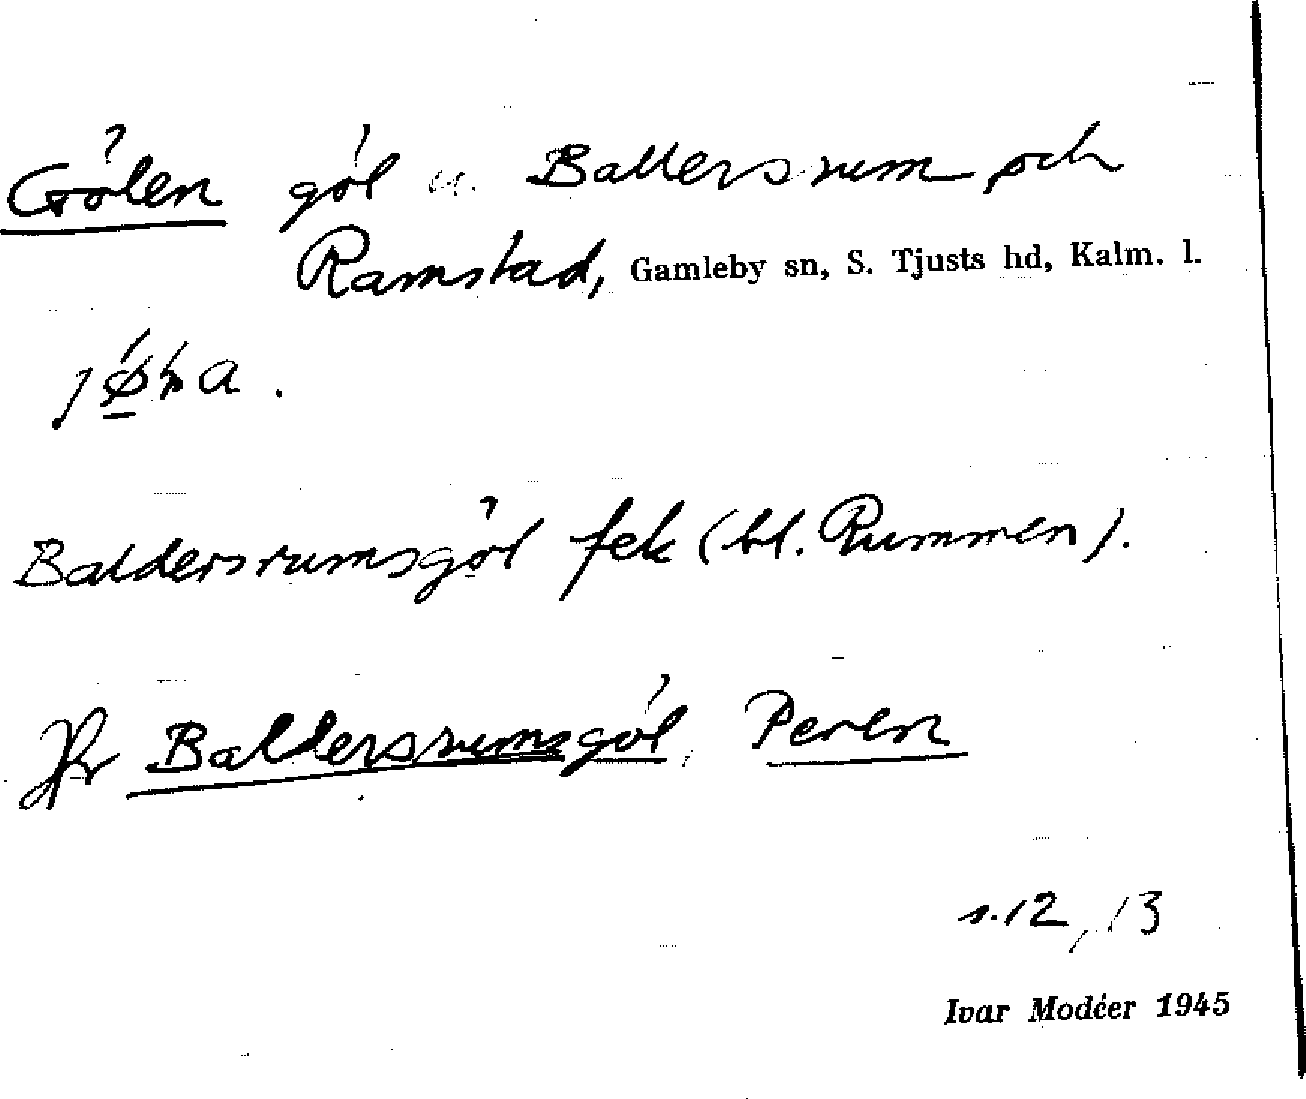 Gölen göl u. Baldersrum och
Ramstad, Gamleby sn, S. Tjusts hd, Kalm. l.
Baldersrumsgöl fek (bl. Rummen).
Jfr Baldersrumsgöl, Peren
s. 12, 13
Ivar Modéer 1945